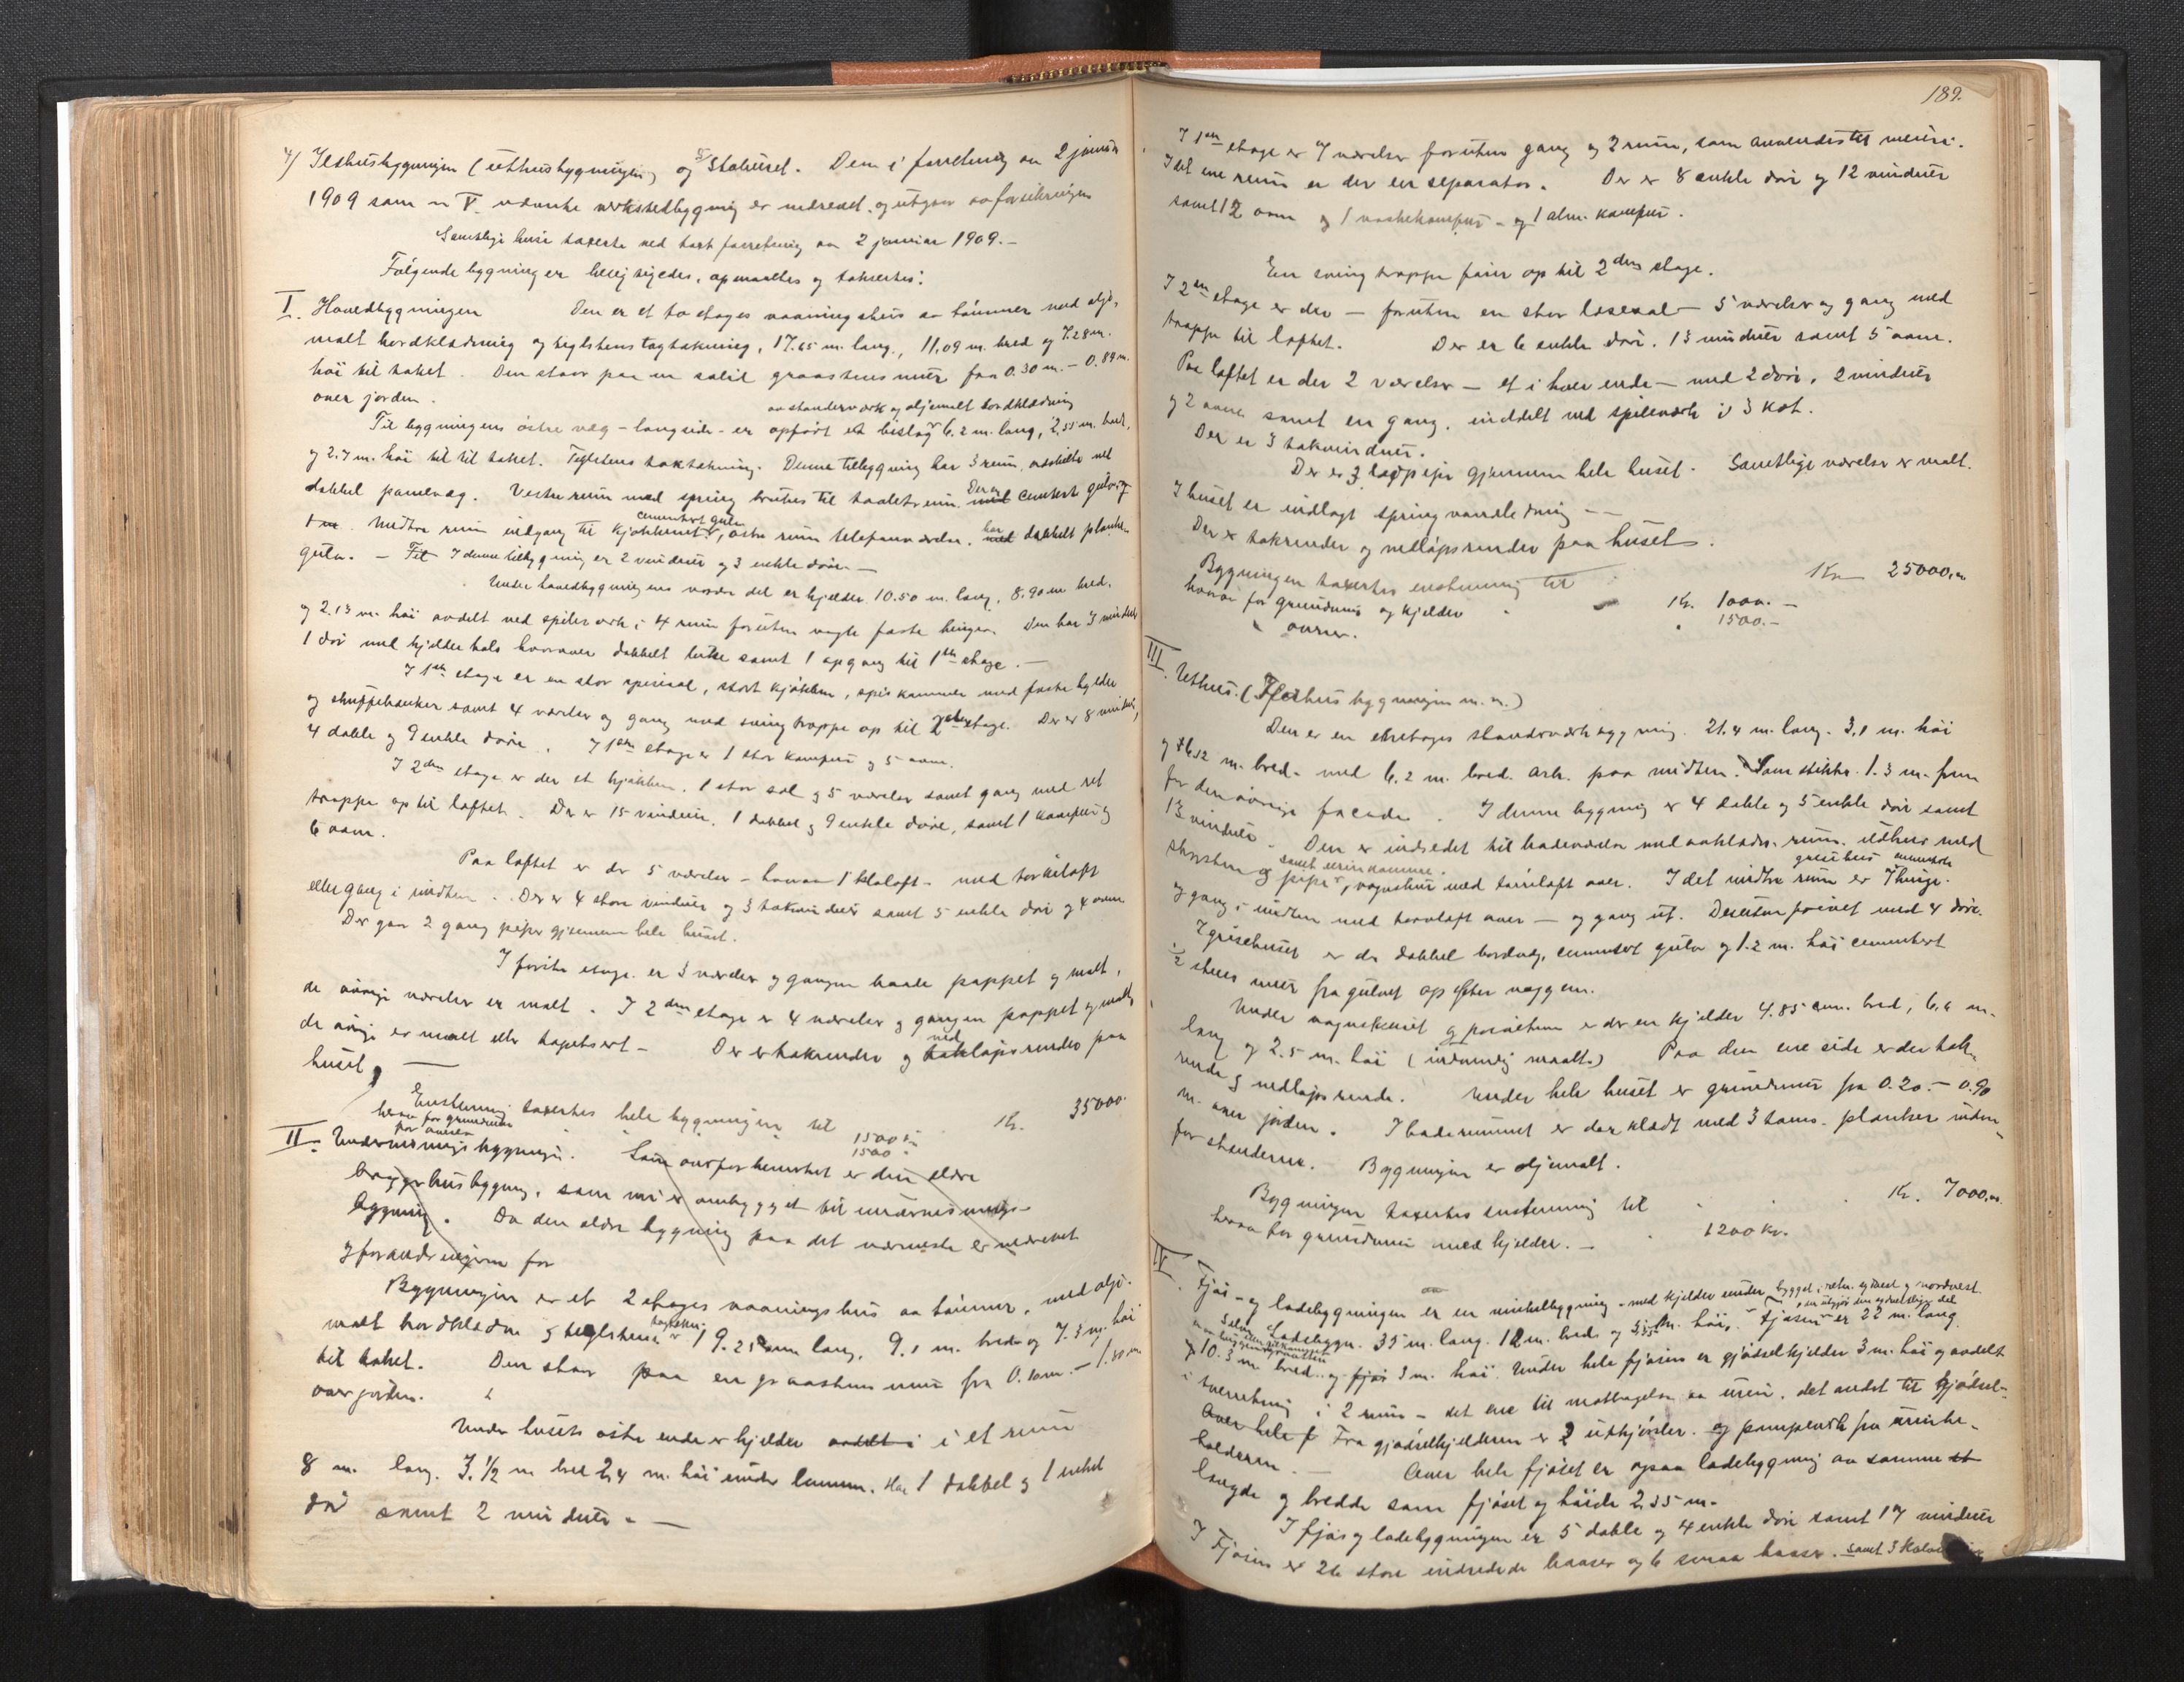 4) Ildhusbygningen (uthusbygningen) og 5) Stabburet. Den i forretning av 2 januar
1909 som nr V nævnte verkstedbygning er nedrevet og utgaar av forsikringen
Samtlige huse taxertes ved takst forretning av 2 januar 1909.-
Følgende bygninger besigtigedes, opmaaltes og taksertes:
I. Hovedbygningen Den er et to etages vaaningshus av tømmer med olje-
malt bordklædning og teglstens tagtækning, 17.65 m. lang, 11,09 m. bred og 7.28 m.
høi til taket. Den staar paa en solid graastensmur fra 0.30 m. - 0.84 m.
over jorden.
av standerværk og oljemalt bordklædning
Til bygningens østre væg - langside - er opført et bislag 6.2 m. lang, 2,55 m. bred,
og 2.7 m. høi til til taket. Teglstens taktækning. Denne tilbygning har 3 rum, adskilte ved
dobbel panelvæg. Vestre rum med spring brukes til toaletrum. Der er med cementert gulv og
1 m. Midtre rum indgang til kjøkkenet cementert gulv, østre rum telefonværelse, har med dobbelt planke-
gulv. - Til I denne tilbygning er 2 vinduer og 3 enkle døre. -
Under hovedbygningens nordre del er kjælder 10.50 m. lang, 8.90 m bred,
og 2.13 m. høi avdelt ved spilerverk i 4 rum foruten nogle faste binger. Den har 3 vinduer
1 dør med kjælderhals hvorover dobbelt luke samt 1 opgang til 1ste etage. -
I 1ste etage er en stor spisesal, stort kjøkken, spiskammer med faste hylder
og skuffebænker samt 4 værelser og gang med svingtrappe op til 2den etage. Der er 8 vinduer,
4 doble og 9 enkle døre. I 1ste etage er 1 stor komfur og 5 ovne.
I 2den etage er der et kjøkken, 1 stor sal og 5 værelser samt gang med ret
trappe op til loftet. Der er 15 vinduer, 1 dobbel og 9 enkle døre, samt 1 komfur og
6 ovne.
Paa loftet er der 5 værelser - hvorav 1 klæloft - med tørkeloft
eller gang i midten. Der er 4 store vinduer og 3 takvinduer samt 5 enkle dør og 4 ovne
Der gaar 2 gang piper gjennem hele huset.
I første etage er 3 værelser og gangen baade pappet og malt,
de øvrige værelser er malt. I 2den etage er 4 værelser og gangen pappet og malt,
de øvrige er malt eller tapetsert - Der er takrender og ned taklapsrender paa
huset. -
Enstemmig taxertes hele bygningen til Kr. 35000.
herav for grundmur 1500 kr
for ovner 1500 "
II. Undervisningsbygningen. Som ovenfor bemerket er den ældre
bryggerhusbygning, som nu er ombygget til undervisnings-
bygning. Da den eldre bygning paa det nærmeste er nedrevet
og forandringen for
Bygningen er et 2 etages vaaningshus av tømmer, med olje-
malt bordklædn og teglstens tagtækn. 19.25 m lang, 9.1 m. bred og 7.3 m. høi
til taket. Den staar paa en graastens mur fra 0.10 m. - 1.50 m
over jorden.
Under husets østre ende er kjelder avdelt i i et rum
8 m. lang. 3.1/2 m bred 2,4 m. høi under lemmen. Har 1 dobbel og 1 enkel
dør samt 2 vinduer. -
189.
I 1ste etage er 7 værelser foruten gang og 2 rum, som anvendes til meieri.
I det ene rum er der en separator. Der er 8 enkle dør og 12 vinduer
samt 12 ovn og 1 vaskekomfur - og 1 alm. komfur.
En svingtrappe fører op til 2den etage.
I 2den etage er der - foruten en stor læsesal - 5 værelser og gang med
trappe til loftet. Der er 6 enkle dør. 13 vinduer samt 5 ovne.
Paa loftet er der 2 værelser - et i hver ende - med 2 dør, 2 vinduer
og 2 ovne samt en gang, inddelt ved spileverk i 3 kot.
Der er 3 takvinduer.
Der er 3 løppiper gjennem hele huset. Samtlige værelser er malt.
I huset er indlagt springvandledning --
Der er takrender og nedløpsrender paa huset.
Bygningen taxertes enstemmig til Kr 25000,00
hvorav for grundmur og kjelder Kr. 1000. -
" ovner. " 1500. -
III. Uthus. (Ildhusbygningen m. m.)
Den er en etetages standerverksbygning. 21.4 m. lang. 3.1 m. høi
og 6.12 m. bred. med 6.2 m. bred ark. paa midten. Som stikker 1.3 m. frem
for den øvrige facade. I denne bygning er 4 doble og 5 enkle dør samt
13 vinduer. Den er indredet til badeværelse med avklædn. rum, ildhus med
skorsten og pipe samt urinkammer, vognskur med tørreloft over. I det midtre rum grisehus er 7 binge.
og gang i midten med torvloft over - og gang ut. Desuten privet med 4 døre.
I grisehuset er der dobbel bordvæg, cementert gulv og 1.2 m. høi cementert
1/2 stens mur fra gulvet op efter væggene.
Under vognskuret og privetene er der en kjelder 4.85 cm. bred, 6,6 m.
lang og 2.5 m. høi (indvendig maalt.) Paa den ene side er der tak-
rende og nedløpsrende. Under hele huset er grundmur fra 0.20. - 0.90
m. over jorden. I baderummet er der klædt med 3 toms. planker inden-
for stenderne. - Bygningen er oljemalt.
Bygningen taxertes enstemmig til Kr. 7000,00
herav for grundmur med kjelder. - 1200 Kr.
IV. Fjøs - og ladebygningen er en vinkelbygning - med kjelder under bygget i retn. sydvest og nordvest.
Selve Ladebygn. 35 m. lang. 12 m. bred og 5.35 m. høi. Fjøsen, som utgjør den sydvestlige del er 22 m. lang
og 10.3 m bred og fjøs 3 m. høi. Under hele fjøsen er gjødselkjelder 3 m. høi og avdelt
i tverretning i 2 rum - det ene til mottagelse av urin, det andet til gjødsel.
Over hele f Fra gjødselkjelderen er 2 utkjørsler. og pumpeverk fra urinbe-
holderen. - Over hele fjøset er opsat ladebygning av samme st
længde og bredde som fjøset og høide 2,55 m.
I fjøs og ladebygningen er 5 doble og 4 enkle dør samt 17 vinduer
I Fjøsen er 26 store indredede baaser og 6 smaa baaser. samt 3